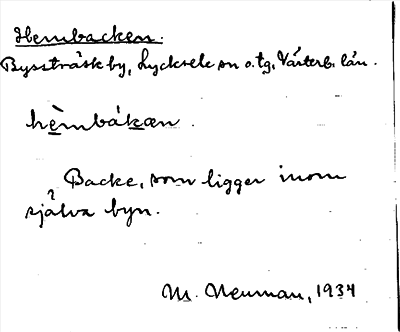 Hembacken.
Bysstråsk by, Lycksele sn o. tg, Västerb. län.
hèmbákæn.
Backe, som ligger inom
själva byn.
M. Neuman, 1934